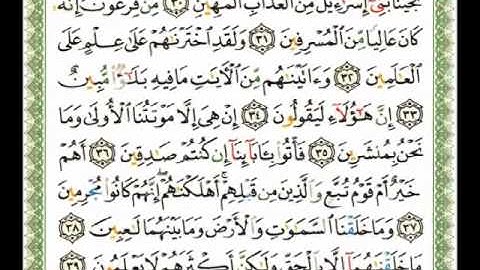 نَجَّيْنَا بَنِىٓ إِسْرَٰٓءِيلَ مِنَ ٱلْعَذَابِ ٱلْمُهِينِ ٣٠ مِن فِرْعَوْنَ إِنَّهُۥ
كَانَ عَالِيًا مِّنَ ٱلْمُسْرِفِينَ ٣١ وَلَقَدِ ٱخْتَرْنَٰهُمْ عَلَىٰ عِلْمٍ عَلَى
ٱلْعَٰلَمِينَ ٣٢ وَءَاتَيْنَٰهُم مِّنَ ٱلْءَايَٰتِ مَا فِيهِ بَلَٰٓؤٌا۟ مُّبِينٌ
٣٣ إِنَّ هَٰٓؤُلَآءِ لَيَقُولُونَ ٣٤ إِنْ هِىَ إِلَّا مَوْتَتُنَا ٱلْأُولَىٰ وَمَا
نَحْنُ بِمُنشَرِينَ ٣٥ فَأْتُوا۟ بِـَٔابَآئِنَآ إِن كُنتُمْ صَٰدِقِينَ ٣٦ أَهُمْ
خَيْرٌ أَمْ قَوْمُ تُبَّعٍ وَٱلَّذِينَ مِن قَبْلِهِمْ أَهْلَكْنَٰهُمْ إِنَّهُمْ كَانُوا۟ مُجْرِمِينَ
٣٧ وَمَا خَلَقْنَا ٱلسَّمَٰوَٰتِ وَٱلْأَرْضَ وَمَا بَيْنَهُمَا لَٰعِبِينَ ٣٨
مَا خَلَقْنَٰهُمَآ إِلَّا بِٱلْحَقِّ وَلَٰكِنَّ أَكْثَرَهُمْ لَا يَعْلَمُونَ ٣٩